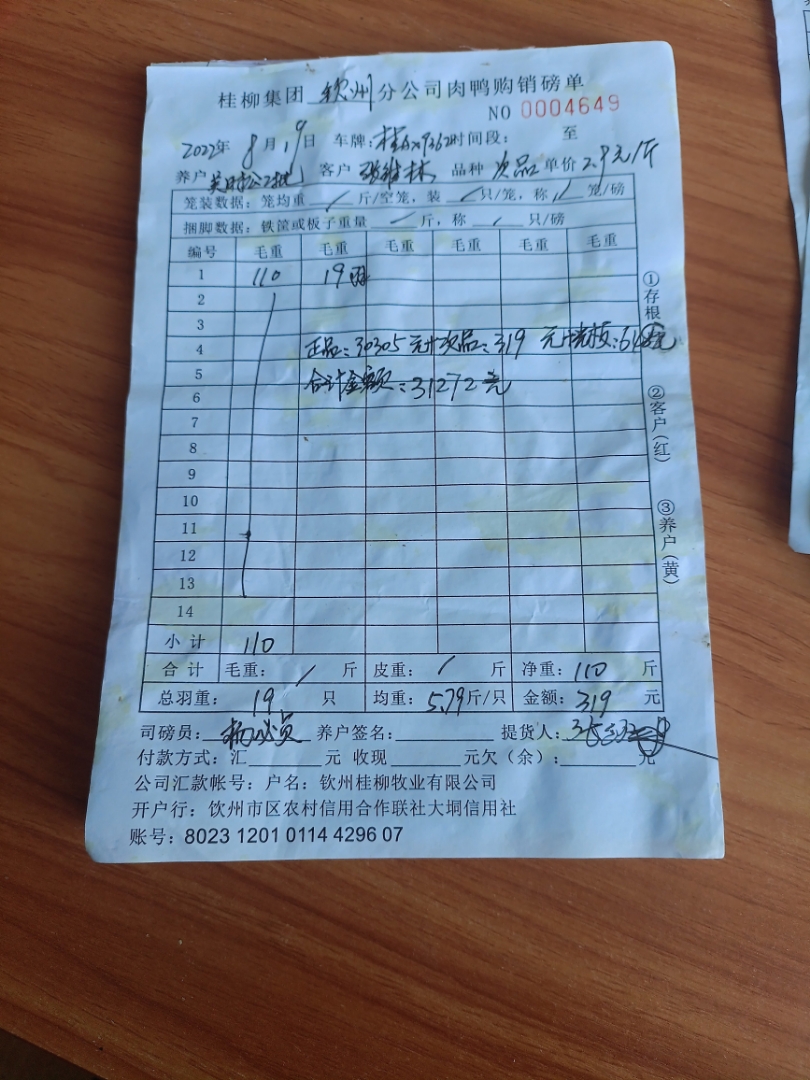 桂柳集团 钦州 分公司肉鸭购销磅单
NO 0004649
2022年 8月19日 车牌: 时间段: 至
养户 客户 张维林 品种 次品 单价 2.9元/斤
笼装数据：笼均重 / 斤/空笼，装 / 只/笼，称 / 笼/磅
捆脚数据：铁筐或板子重量 / 斤，称 / 只/磅
编号 毛重 毛重 毛重 毛重 毛重 毛重
1 110 19羽
2
3
4 正品：30305元+次品：319元+ ：648元
5 合计金额：31272元
6
7
8
9
10
11
12
13
14
小计 110
合计 毛重： / 斤 皮重： / 斤 净重：110 斤
总羽重： 19 只 均重：5.79斤/只 金额：319 元
司磅员： 养户签名： 提货人：
付款方式：汇 元 收现 元欠（余）： 元
公司汇款帐号：户名：钦州桂柳牧业有限公司
开户行：钦州市区农村信用合作联社大垌信用社
账号：8023 1201 0114 4296 07
①存根
②客户（红）
③养户（黄）